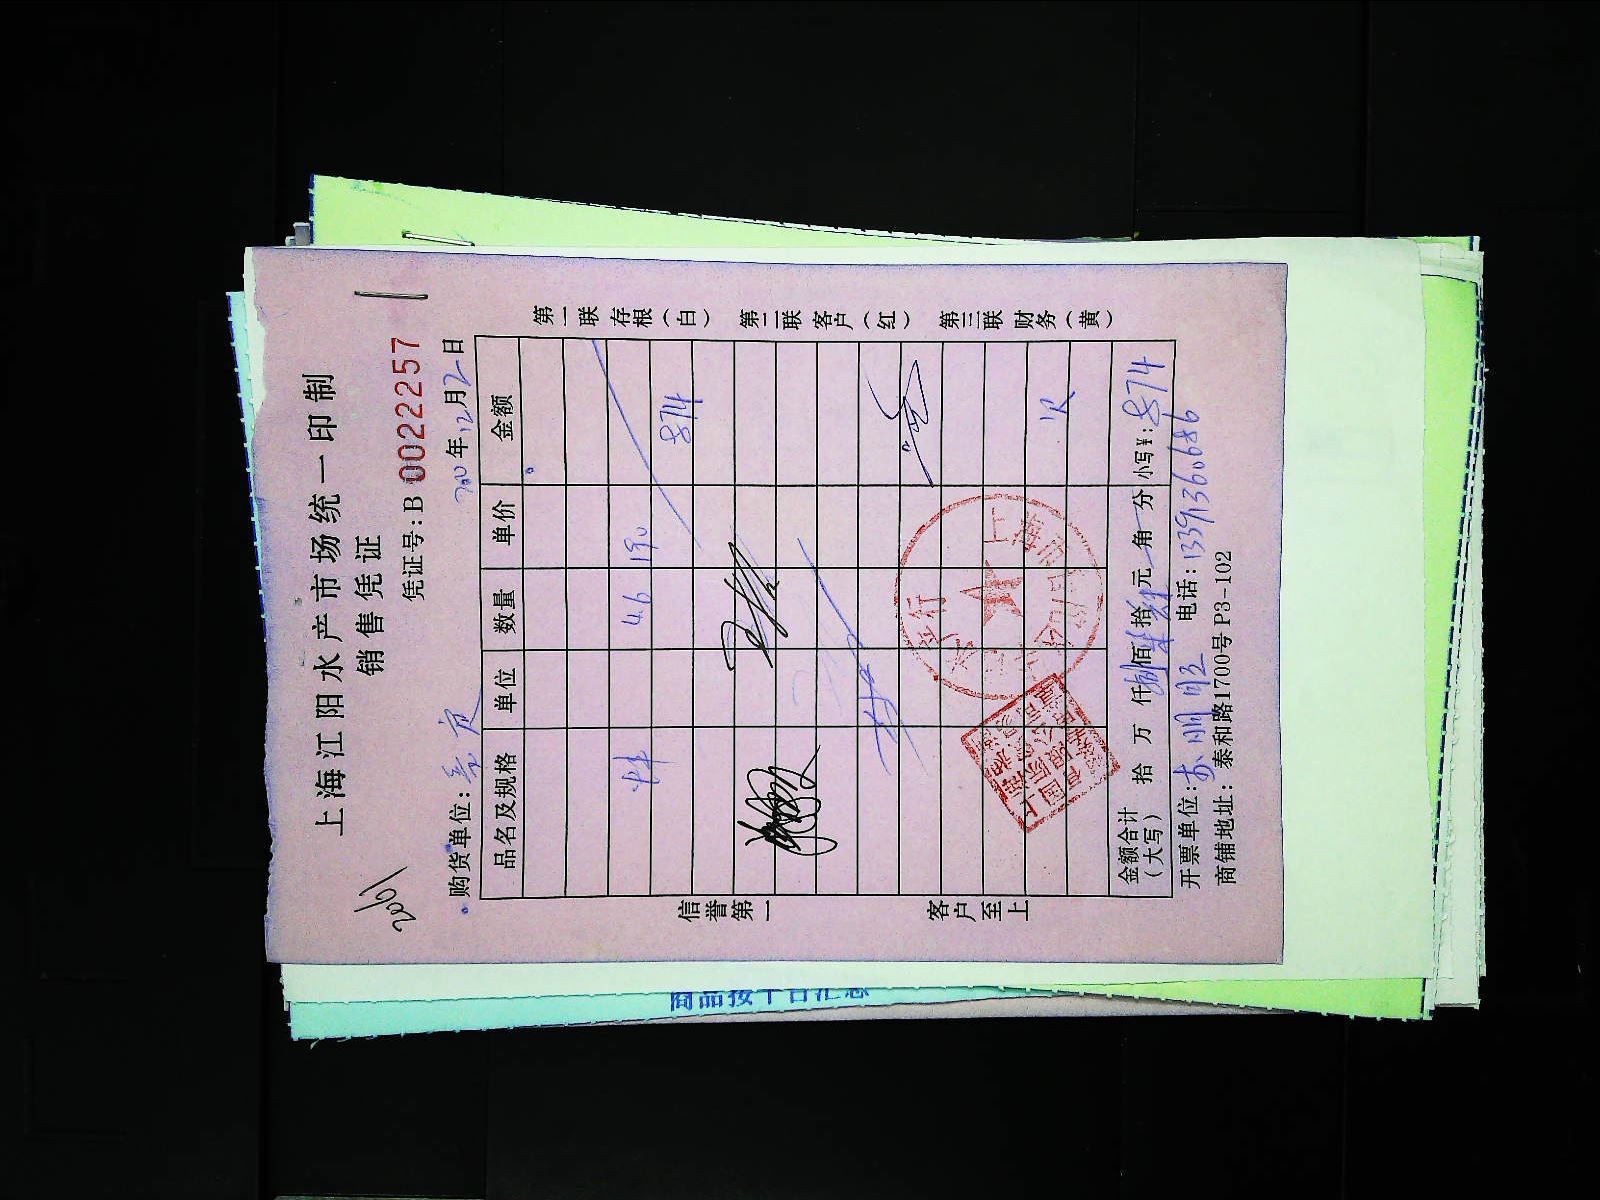 上海江阳水产市场统一印制
销售凭证
凭证号:B 0022257
2061
购货单位:
年12月2日
品名及规格 单位 数量 单价 金额
4.6 190
874
欠
金额合计(大写) 拾 万 仟捌佰柒拾肆元 角 分 小写¥:874
开票单位:苏朋旺 电话:13391360686
商铺地址:泰和路1700号P3-102
信誉第一 客户至上
第一联 存根(白) 第二联 客户(红) 第三联 财务(黄)
商品按平台汇总